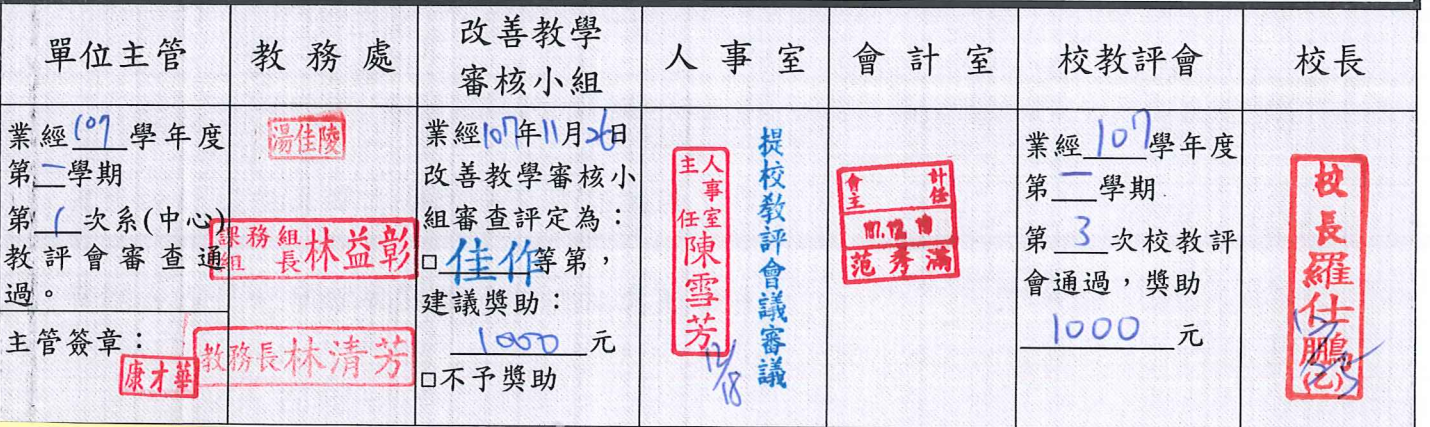 單位主管
教務處
改善教學
審核小組
人事室
會計室
校教評會
校長
業經107學年度
第一學期
第1次系(中心)
教評會審查通
過。
主管簽章：
康才華
湯佳陵
課務組
組長林益彰
教務長林清芳
業經107年11月26日
改善教學審核小
組審查評定為：
□佳作等第，
建議獎助：
1000元
□不予獎助
人事室
主任陳雪芳
12/18
提校教評會議審議
會計
主任
范秀滿
業經107學年度
第一學期
第3次校教評
會通過，獎助
1000元
校長羅仕鵬(乙)